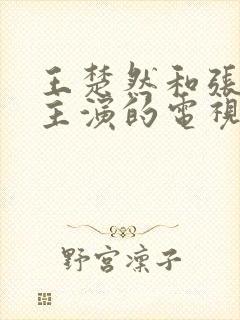 王楚然和張
主演的電視
野宮凜子